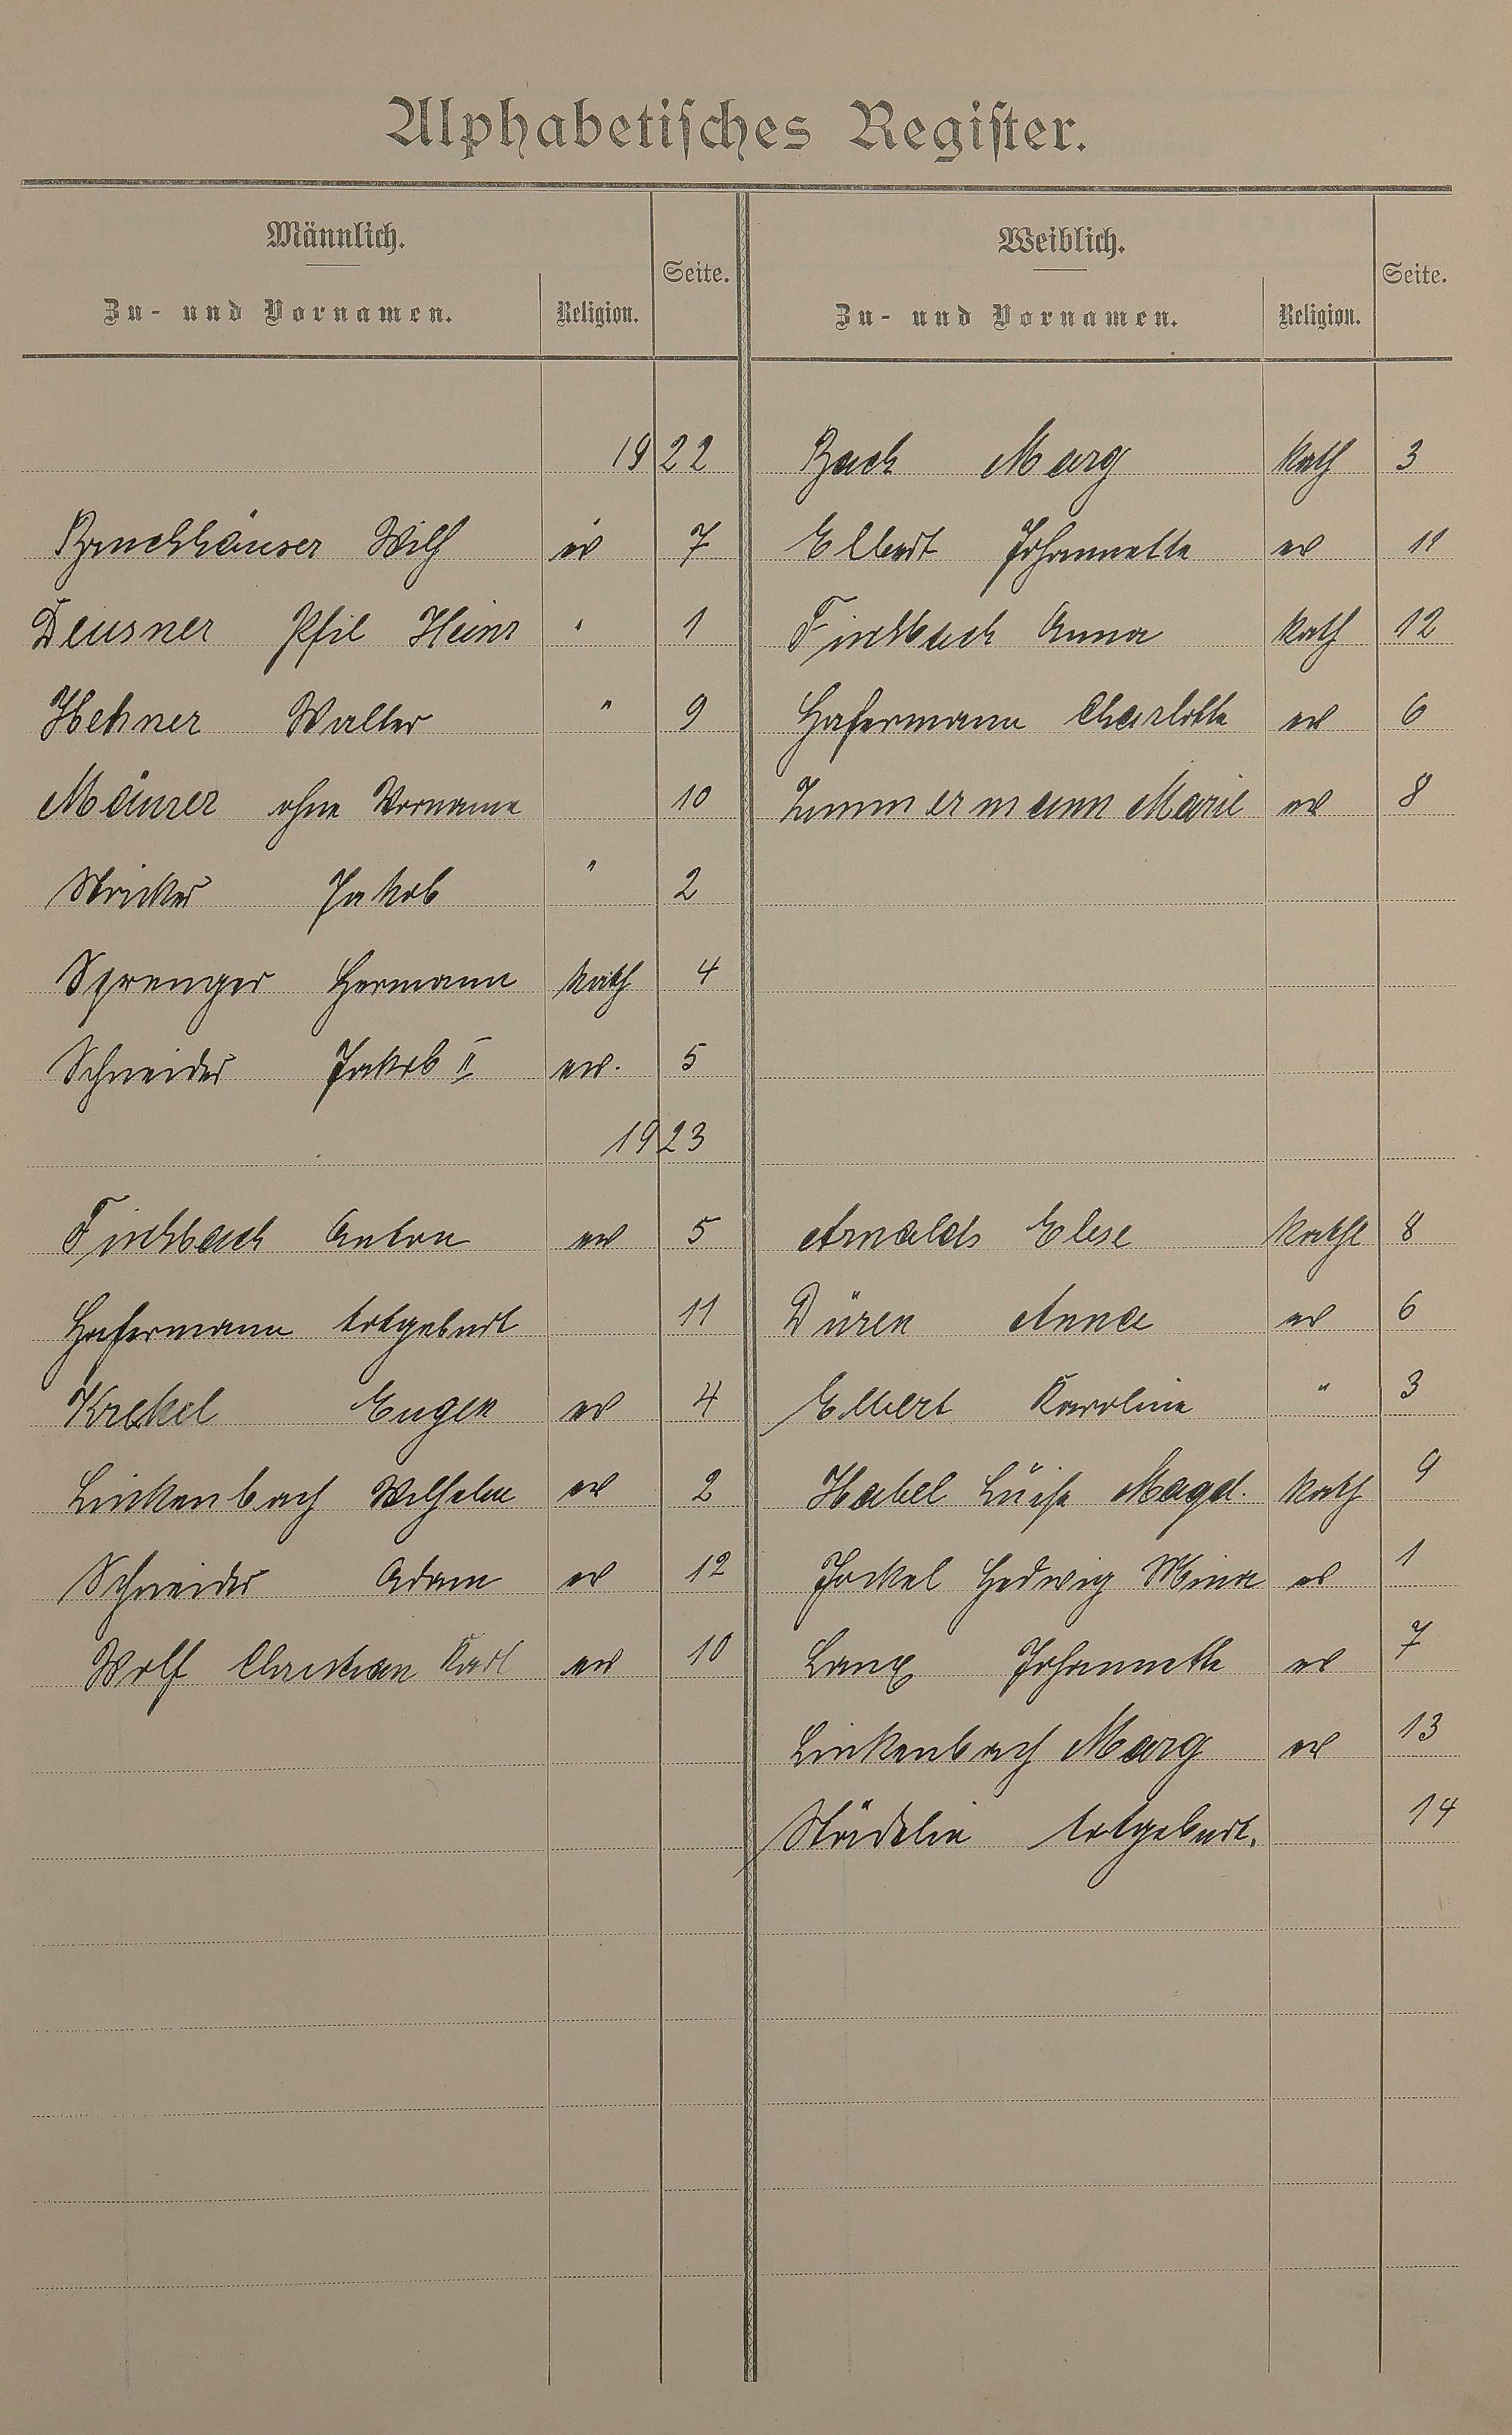 Alphabetisches Register.
Männlich.
Zu- und Vornamen. Religion. Seite.
1922
Bruchhäuser Wilh ev 7
Deusner Phil Heinr " 1
Hehner Walter " 9
Mäurer ohne Vorname 10
Stricker Jakob " 2
Sprenger Hermann Kath 4
Schneider Jakob II ev. 5
1923
Fischbach Anton ev 5
Hafermann totgeburt 11
Krekel Eugen ev 4
Linkenbach Wilhelm ev 2
Schneider Adam ev 12
Wolf Christian Karl ev 10
Weiblich.
Zu- und Vornamen. Religion. Seite.
Bach Marg Kath 3
Elbert Johannette ev 11
Fischbach Anna Kath 12
Hafermann Charlotte ev 6
Zimmermann Marie ev 8
Arnolds Elise Kathl 8
Düren Anna ev 6
Elbert Karoline " 3
Habel Luise Magd. Kath 9
Jockel Hedwig Mina ev 1
Lang Johannette ev 7
Linkenbach Marg ev 13
totgeburt. 14